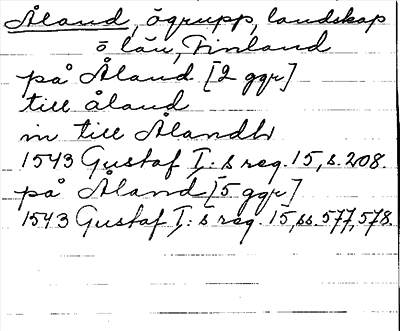 Åland, ögrupp, landskap
o län, Finland
på Åland [2 ggr]
till åland
in till Ålandh
1543 Gustaf I:s reg. 15, s. 208.
på Åland [5 ggr]
1543 Gustaf I:s reg. 15, ss. 577, 578.